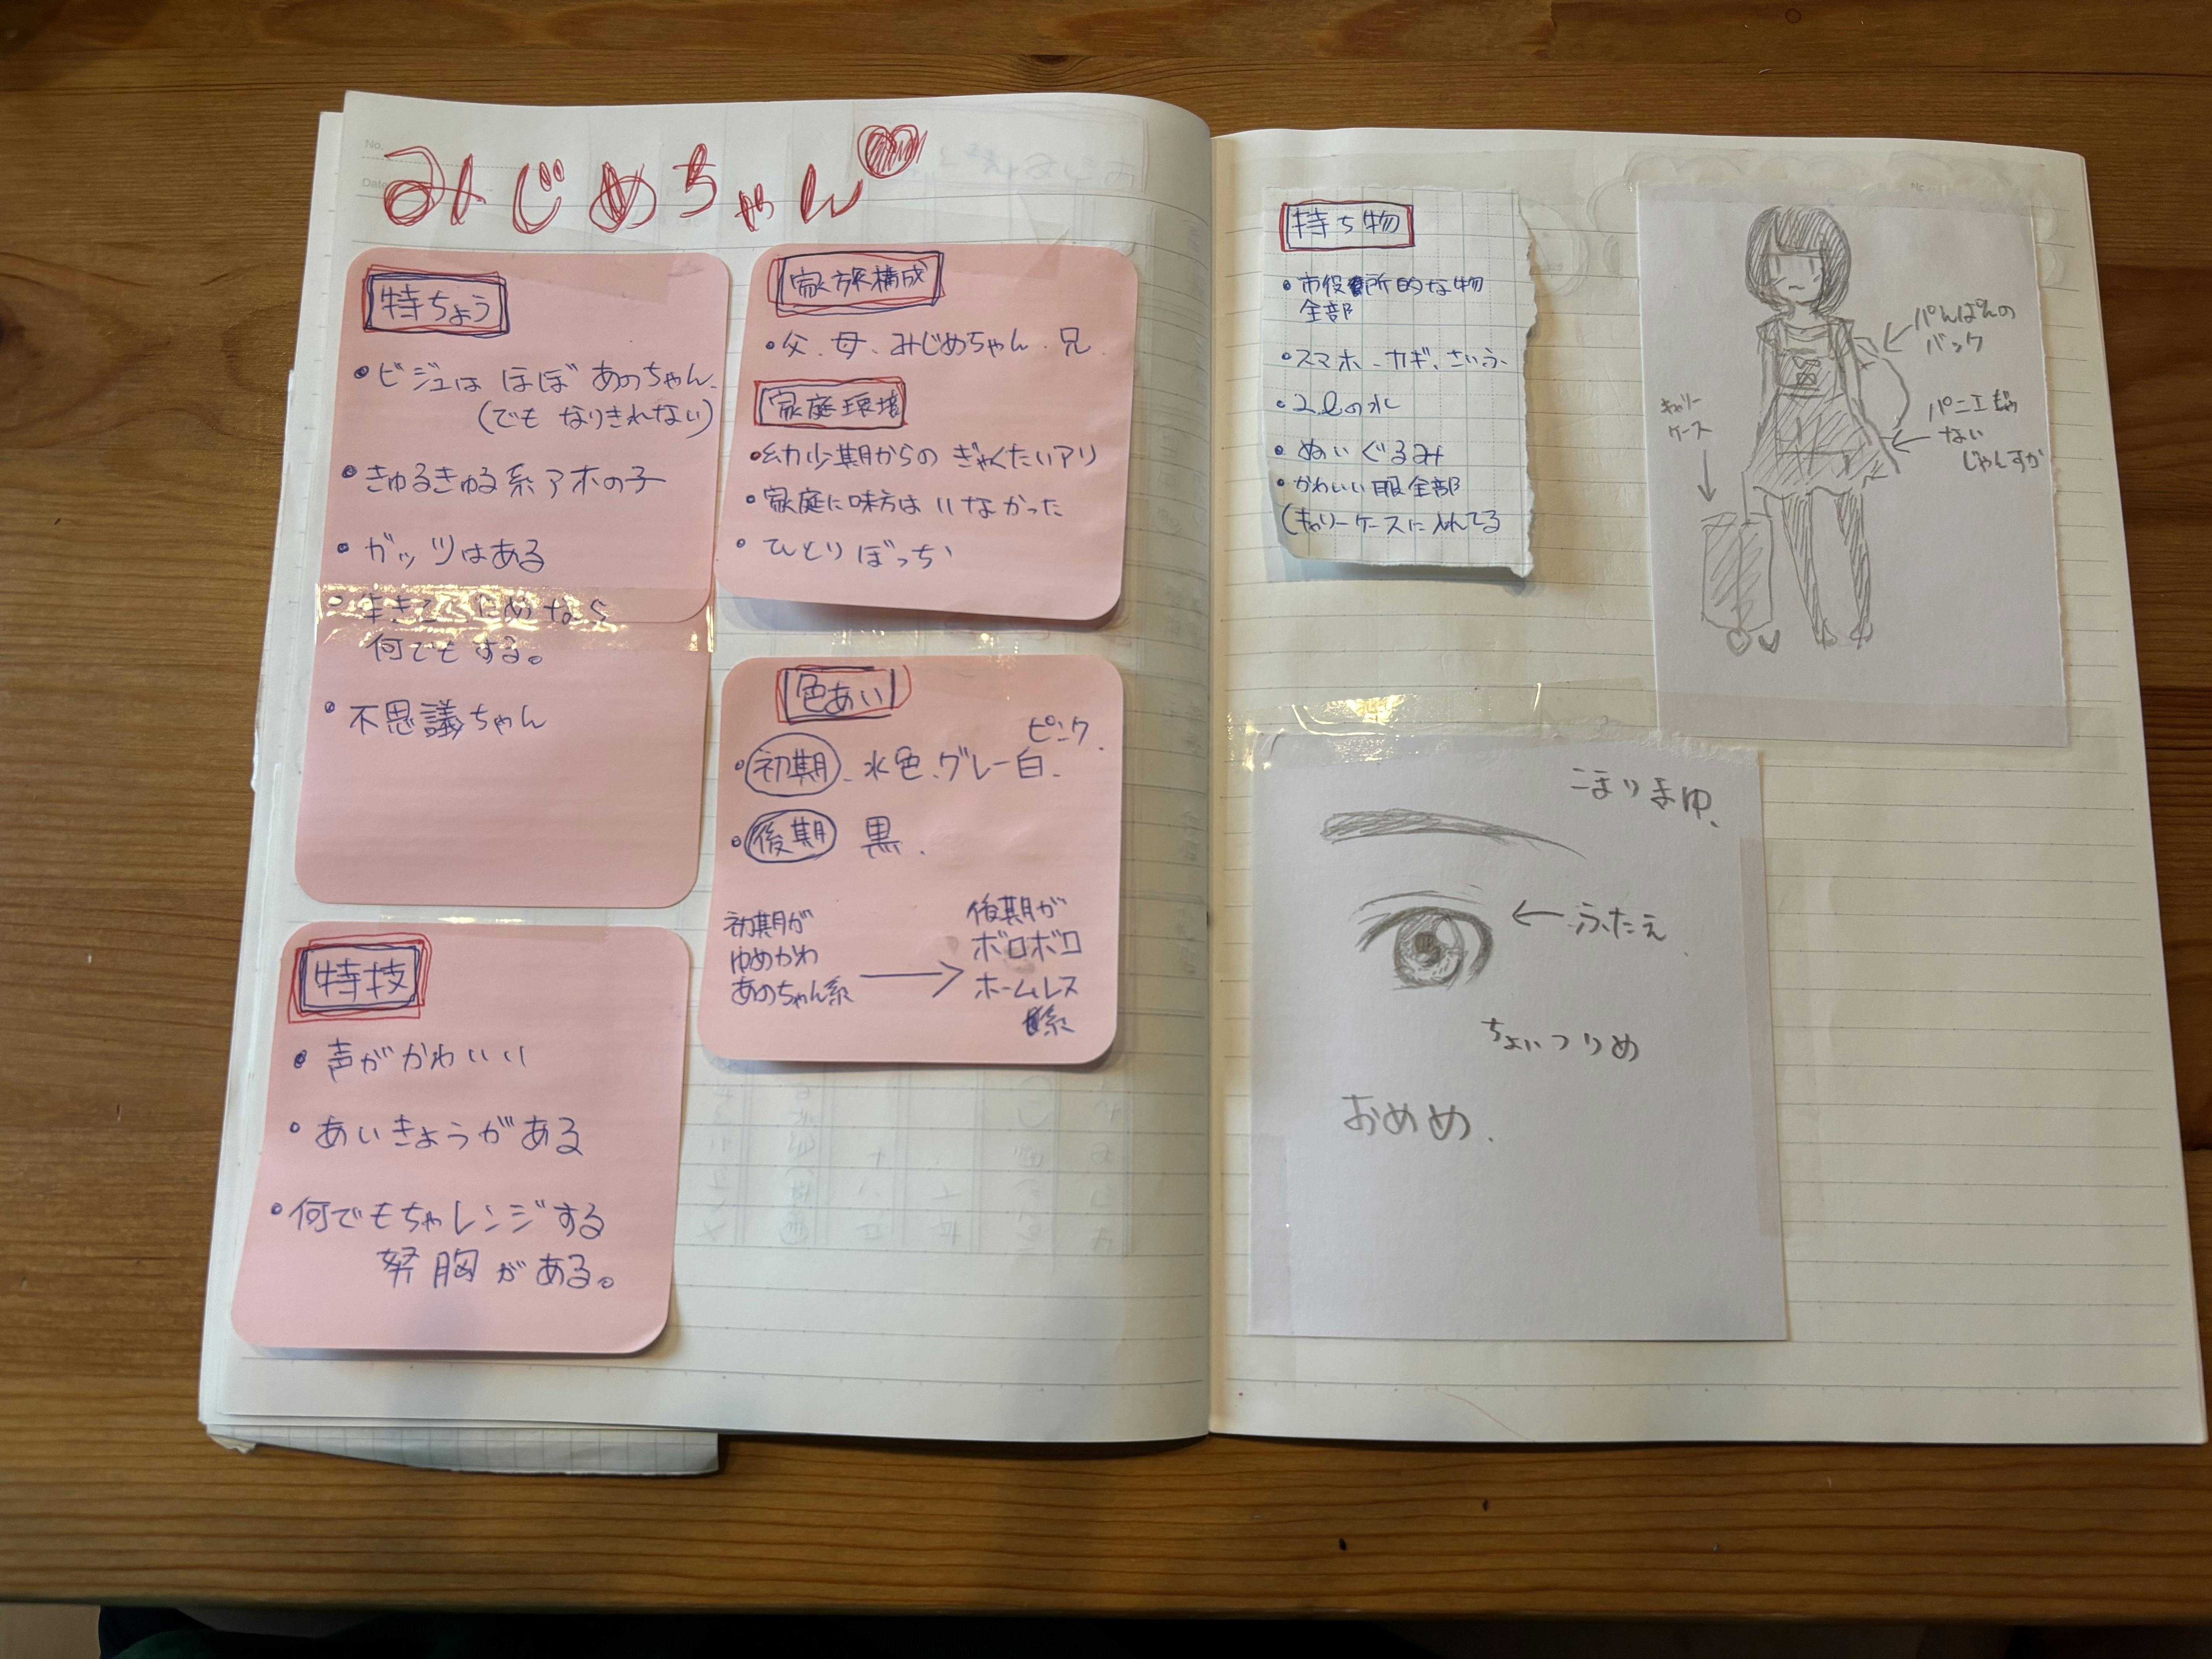 みじめちゃん
特ちょう
・ビジュはほぼあのちゃん、
(でもなりきれない)
・きゅるきゅる系アホの子
・ガッツはある
・生きるためなら
何でもする。
・不思議ちゃん
特技
・声がかわいい
・あいきょうがある
・何でもちゃレンジする
努胸がある。
家族構成
・父、母、みじめちゃん、兄
家庭環境
・幼少期からのぎゃくたいアリ
・家庭に味方はいなかった
・ひとりぼっち
色あい
・初期、水色、グレー白、ピンク、
・後期 黒、
初期が
ゆめかわ
あのちゃん系
→
後期が
ボロボロ
ホームレス
系
持ち物
・市役所的な物
全部
・スマホ、カギ、さいふ
・2ℓの水
・ぬいぐるみ
・かわいい服全部
(キャリーケースに入れてる
パんぱんの
バック
キャリー
ケース
パニエじゃ
ない
じゃんすか
こまりまゆ、
←ふたえ
ちょいつりめ
おめめ、